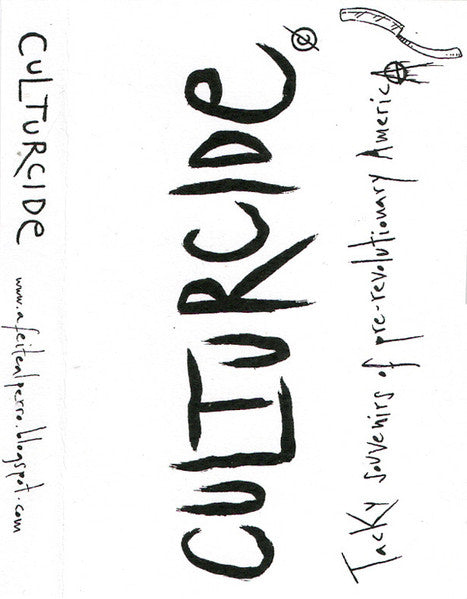 CULTURCIDE www.afeitealperro.blogspot.com
CULTURCIDE
Tacky souvenirs of pre-revolutionary America